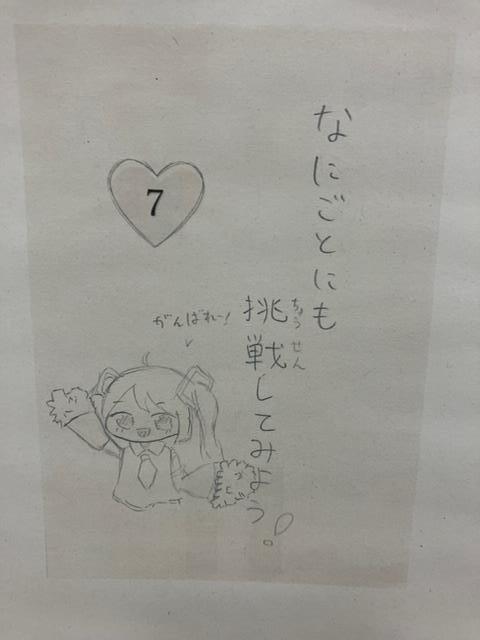 なにごとにも
挑戦してみよう!
ちょうせん
7
がんばれー!